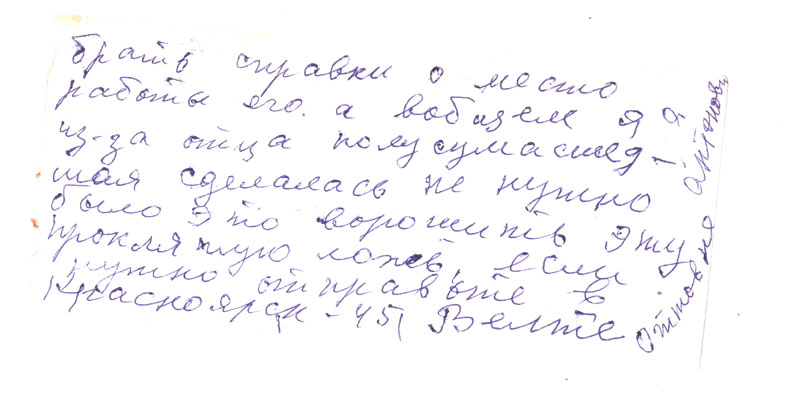 брать справки о место
работы его. а вобщем я я
из-за отца полусумасшед-
шая сделалась не нужно
было это ворошить эту
проклятую ложь, если
нужно отправьте в
Красноярск-45, Велте
Оттовна Антонов